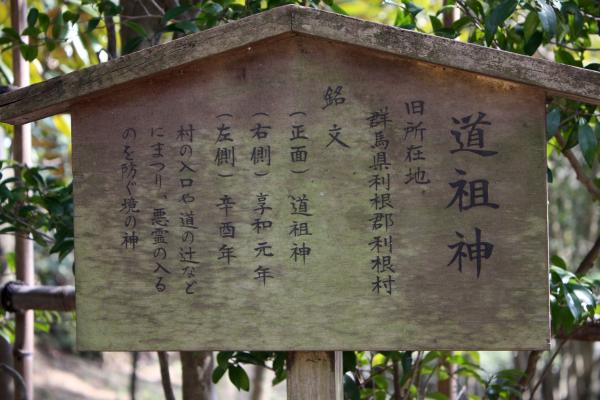 道祖神
旧所在地
群馬県利根郡利根村
銘文
(正面) 道祖神
(右側) 享和元年
(左側) 辛酉年
村の入口や道の辻など
にまつり、悪霊の入る
のを防ぐ境の神